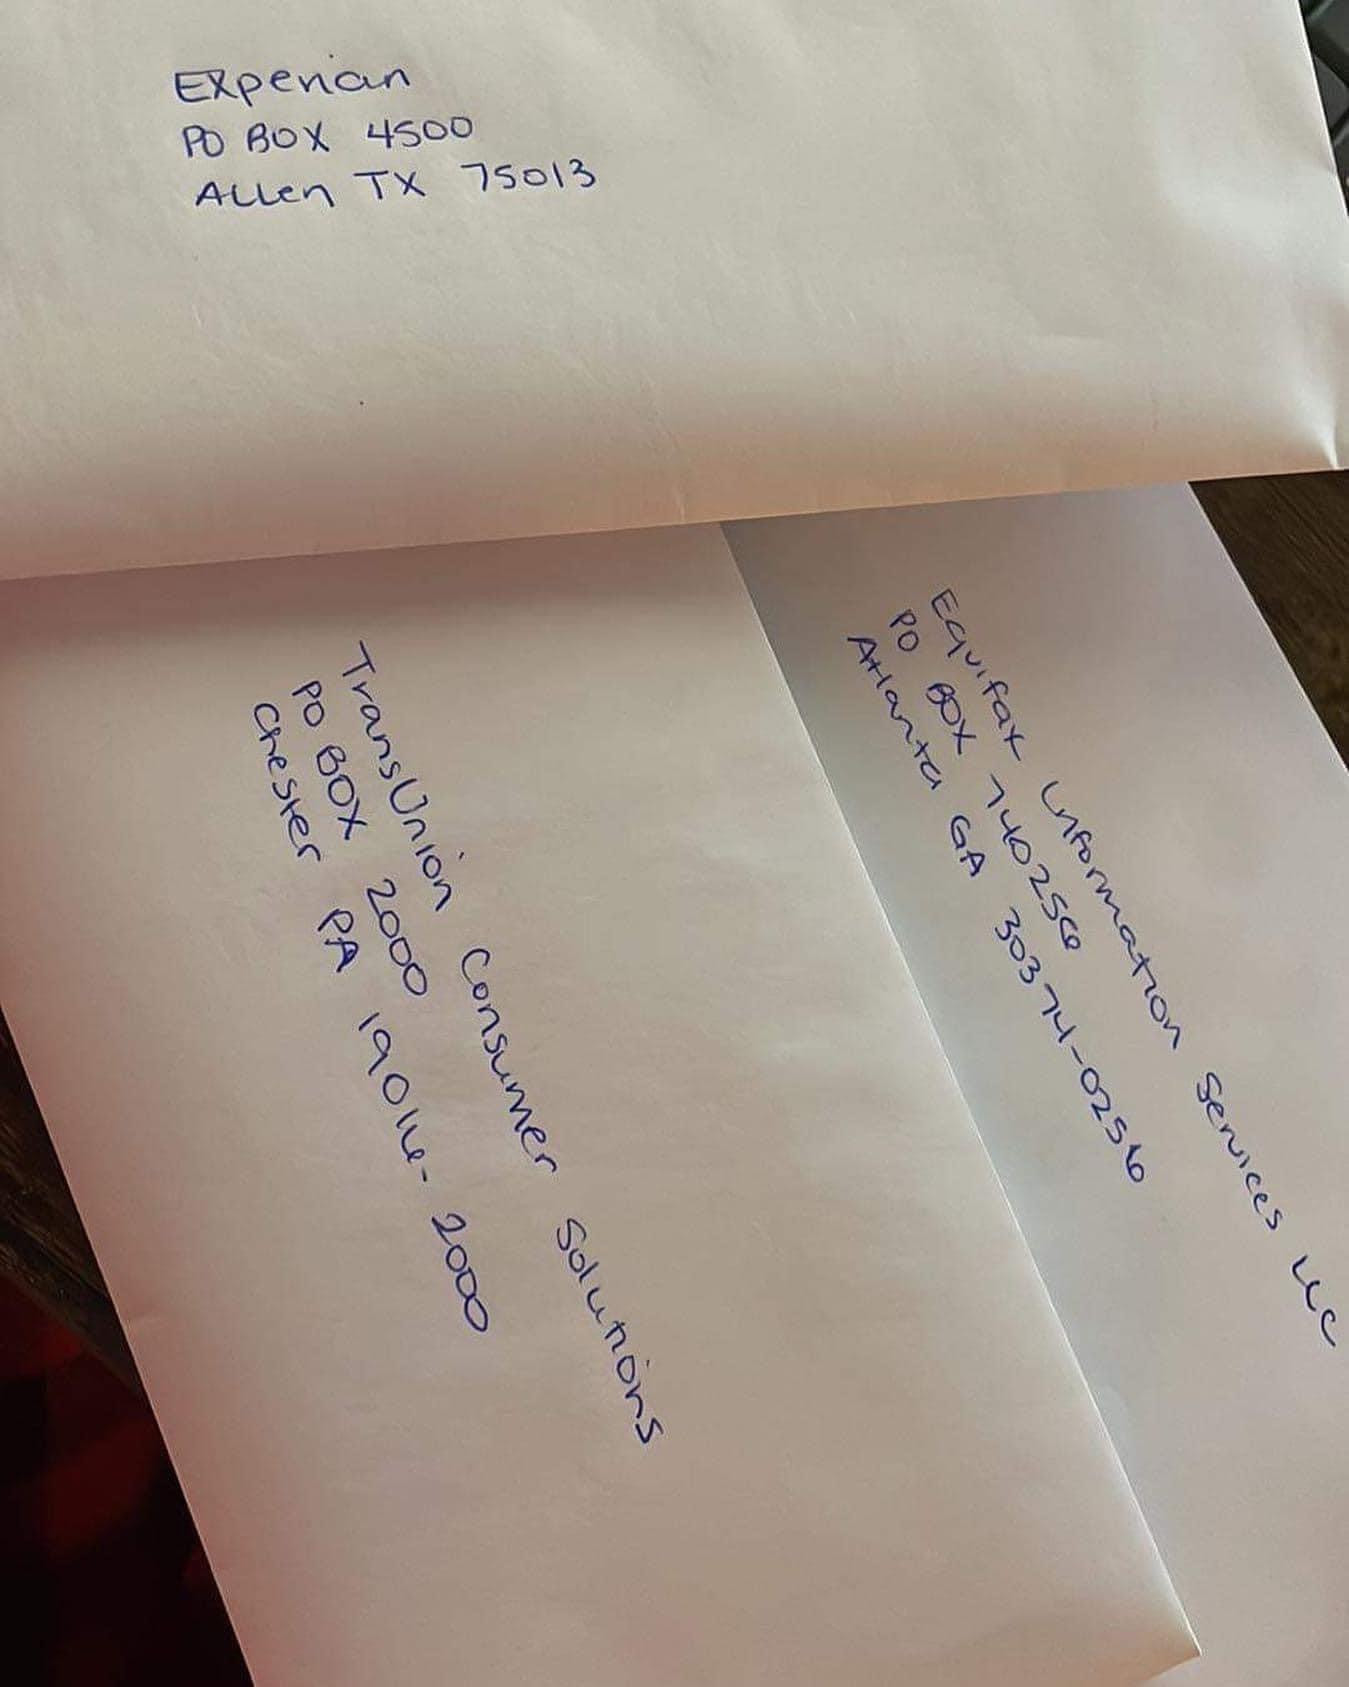 Experian
PO BOX 4500
Allen TX 75013
TransUnion Consumer Solutions
PO BOX 2000
Chester PA 19016-2000
Equifax Information Services LLC
PO BOX 740256
Atlanta GA 30374-0256